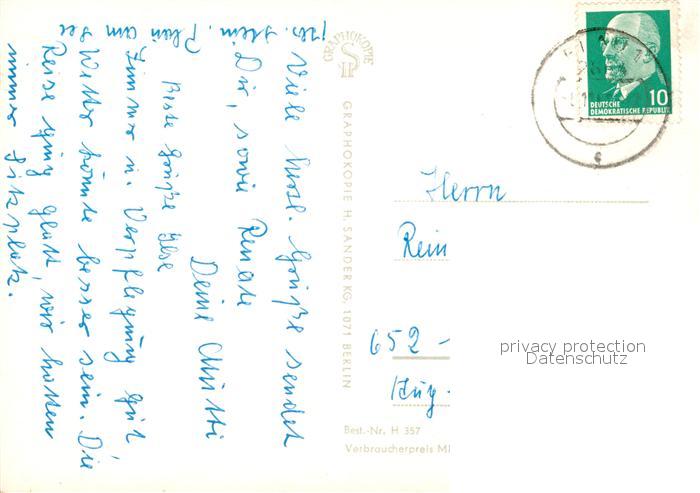 Viele herzl. Grüße sendet
Dir, sowie Renate
Deine Mutti
Beste Grüße Ilse
Zimmer u. Verpflegung gut
Wetter könnte besser sein. Die
Reise ging glatt, wir hatten
immer Sitzplatz.
GRAPHOKOPIE
H S
GRAPHOKOPIE H. SANDER KG, 1071 BERLIN
10
DEUTSCHE
DEMOKRATISCHE REPUBLIK
Herrn
Rein
652 -
Best.-Nr. H 357
Verbraucherpreis M
privacy protection
Datenschutz